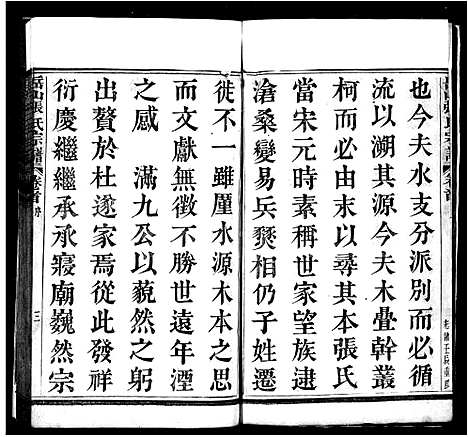 也今夫水支分派別而必循
流以溯其源今夫木疊幹叢
柯而必由末以尋其本張氏
當宋元時素稱世家望族逮
滄桑變易兵燹相仍子姓遷
徙不一雖厪水源木本之思
而文獻無徵不勝世遠年湮
之感　滿九公以藐然之躬
出贅於杜遂家焉從此發祥
衍慶繼繼承承寢廟巍然宗
岳山張氏宗譜
卷首
三